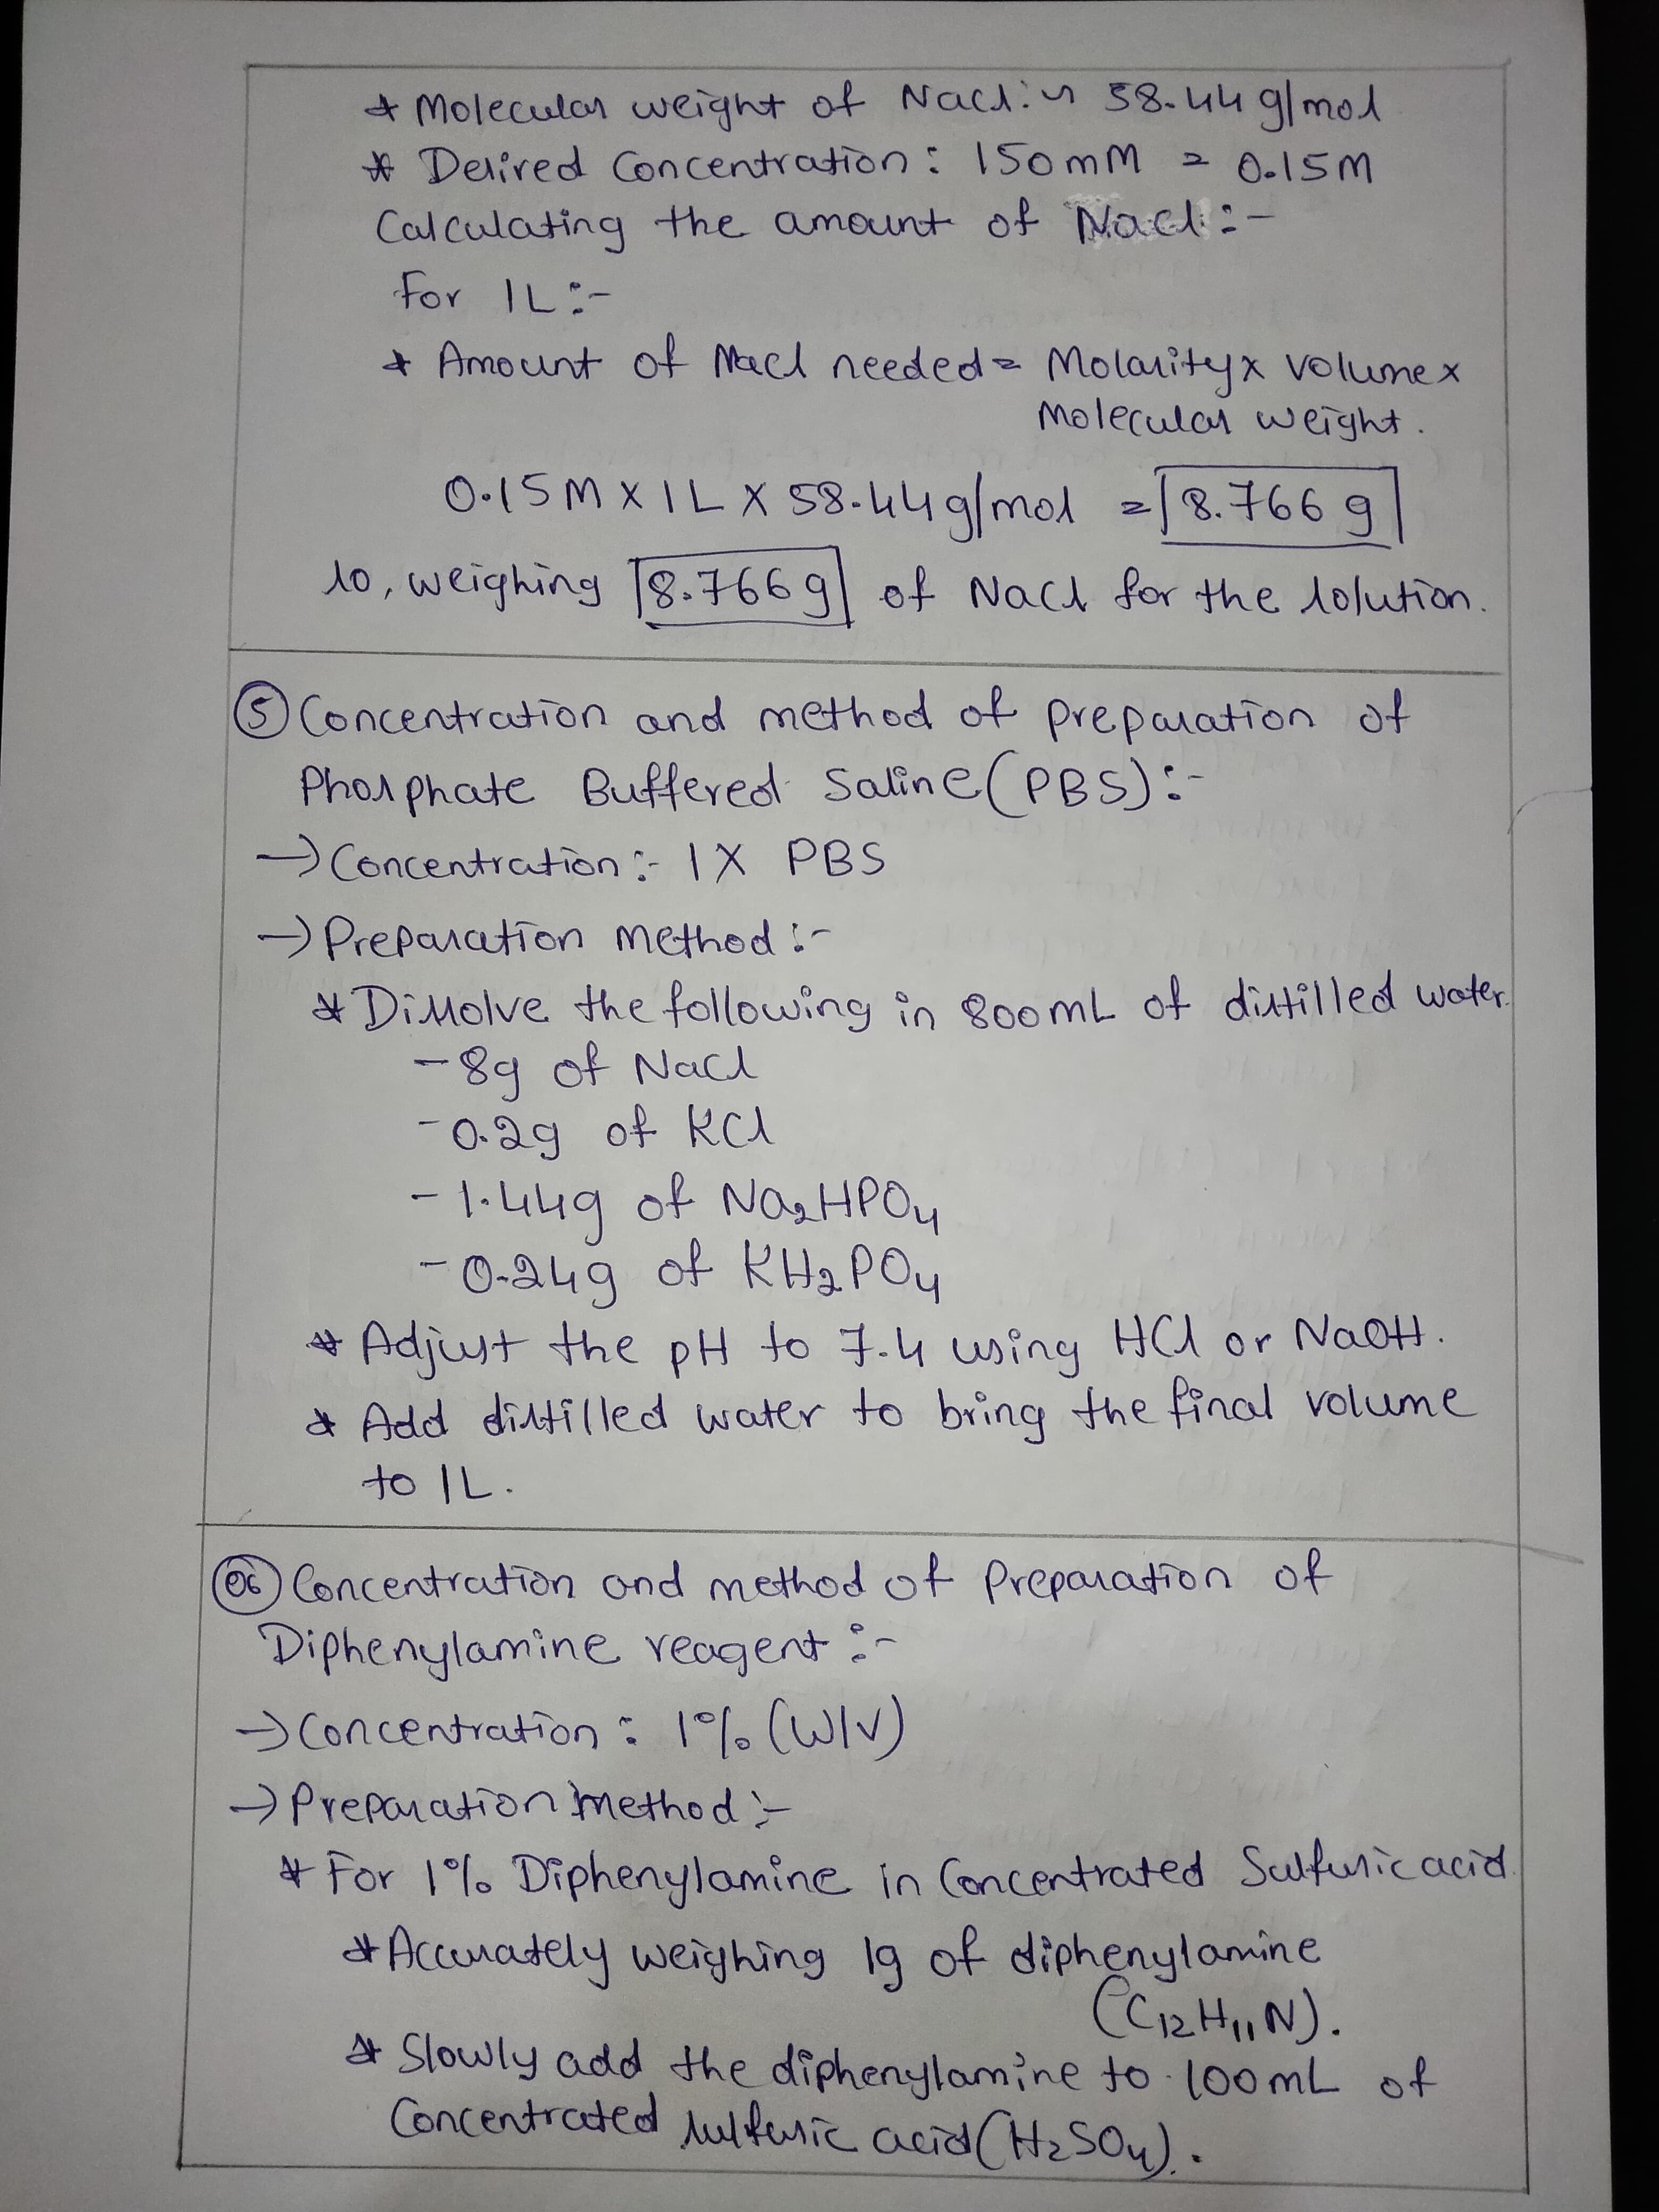 * Molecular weight of NaCl:~ 58.44 g/mol
* Desired Concentration: 150mM = 0.15M
Calculating the amount of NaCl:-
for 1L:-
* Amount of NaCl needed= Molarity x volume x
Molecular weight.
0.15M X 1L X 58.44g/mol = 8.766 g
so, weighing 8.766g of NaCl for the solution.
⑤ Concentration and method of preparation of
Phosphate Buffered Saline (PBS):-
→ Concentration:- 1X PBS
→ Preparation method:-
* Dissolve the following in 800mL of distilled water.
- 8g of NaCl
- 0.2g of KCl
- 1.44g of Na₂HPO₄
- 0.24g of KH₂PO₄
* Adjust the pH to 7.4 using HCl or NaOH.
* Add distilled water to bring the final volume
to 1L.
06 Concentration and method of Preparation of
Diphenylamine reagent:-
→ Concentration: 1% (W/V)
→ Preparation method:-
* For 1% Diphenylamine in Concentrated Sulfuric acid.
* Accurately weighing 1g of diphenylamine
(C₁₂H₁₁N).
* Slowly add the diphenylamine to 100mL of
Concentrated sulfuric acid (H₂SO₄).